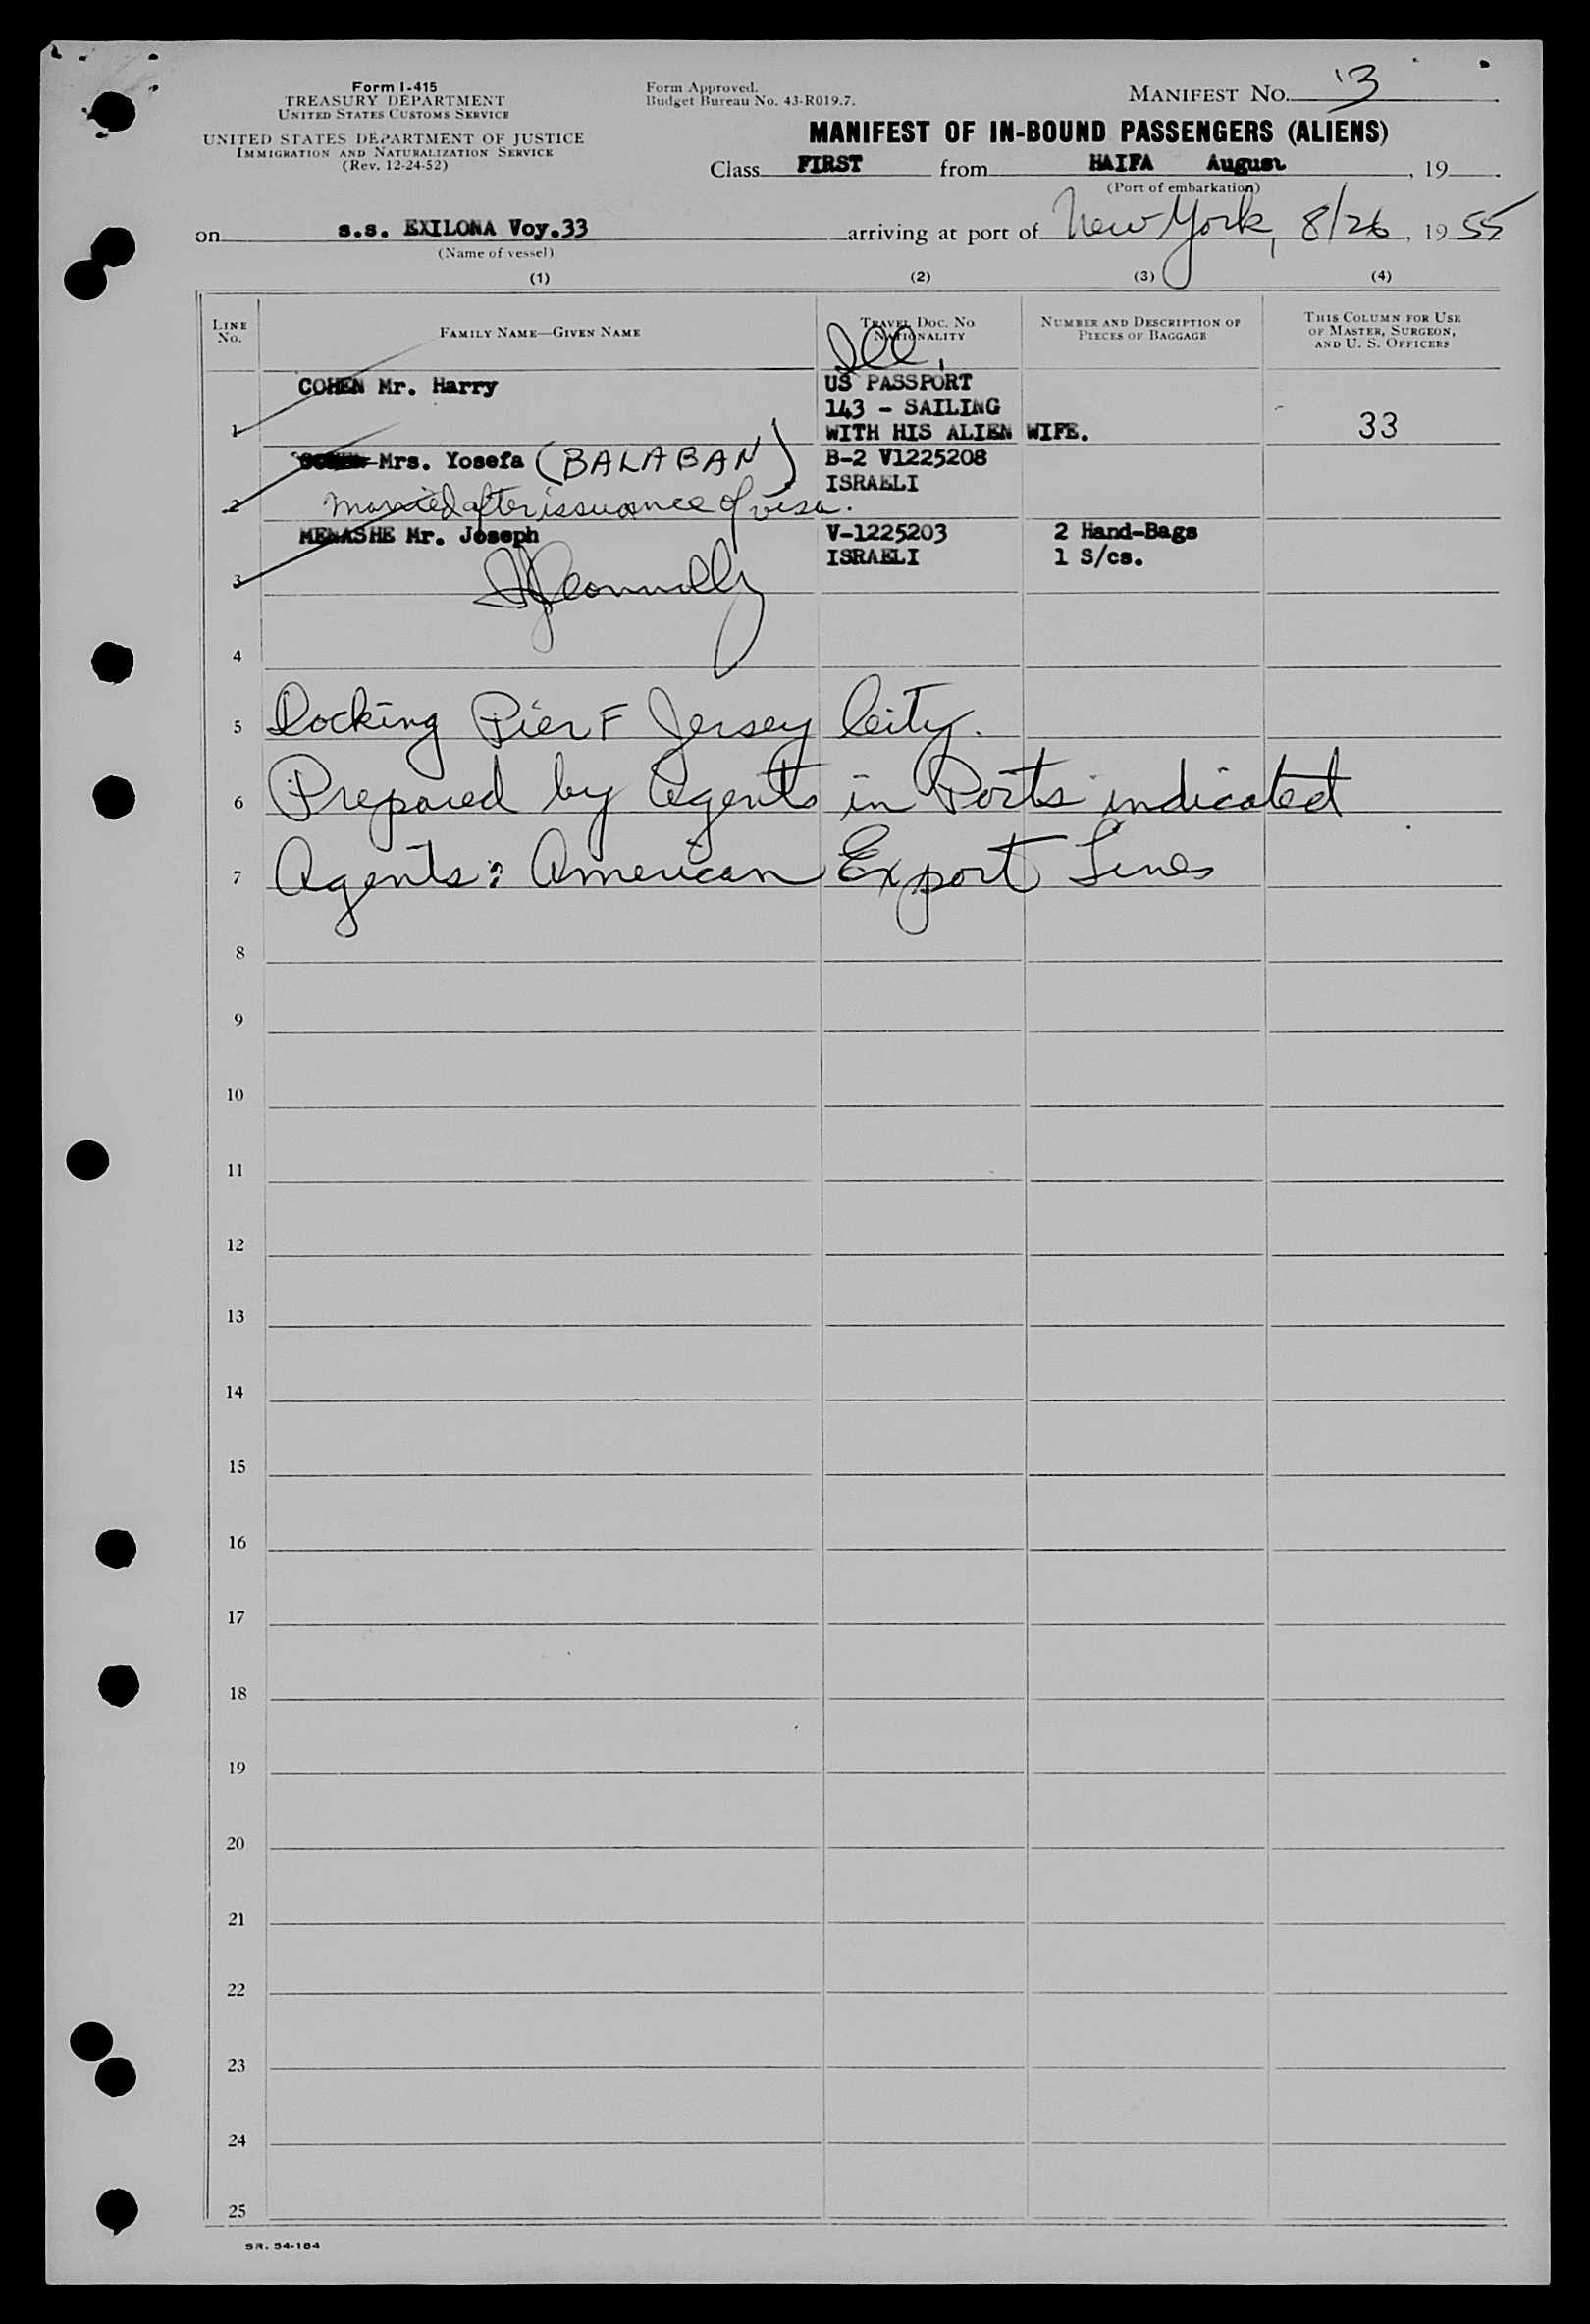 Form I-415
TREASURY DEPARTMENT
UNITED STATES CUSTOMS SERVICE
UNITED STATES DEPARTMENT OF JUSTICE
IMMIGRATION AND NATURALIZATION SERVICE
(Rev. 12-24-52)
Form Approved.
Budget Bureau No. 43-R019.7.
MANIFEST NO. 3
MANIFEST OF IN-BOUND PASSENGERS (ALIENS)
Class FIRST from HAIFA August, 19
(Port of embarkation)
on s.s. EXILONA Voy.33 arriving at port of New York, 8/26, 1955
(Name of vessel)
(1) (2) (3) (4)
LINE No.
FAMILY NAME—GIVEN NAME
TRAVEL DOC. NO. NATIONALITY
NUMBER AND DESCRIPTION OF PIECES OF BAGGAGE
THIS COLUMN FOR USE OF MASTER, SURGEON, AND U. S. OFFICERS
1 COHEN Mr. Harry US PASSPORT
143 - SAILING
WITH HIS ALIEN WIFE. 33
2 COHEN Mrs. Yosefa (BALABAN) B-2 V1225208
ISRAELI
Married after issuance of visa.
3 MENASHE Mr. Joseph V-1225203 2 Hand-Bags
ISRAELI 1 S/cs.
4
5 Docking Pier F Jersey City.
6 Prepared by Agents in Ports indicated
7 Agents: American Export Lines
8
9
10
11
12
13
14
15
16
17
18
19
20
21
22
23
24
25
SR. 54-184